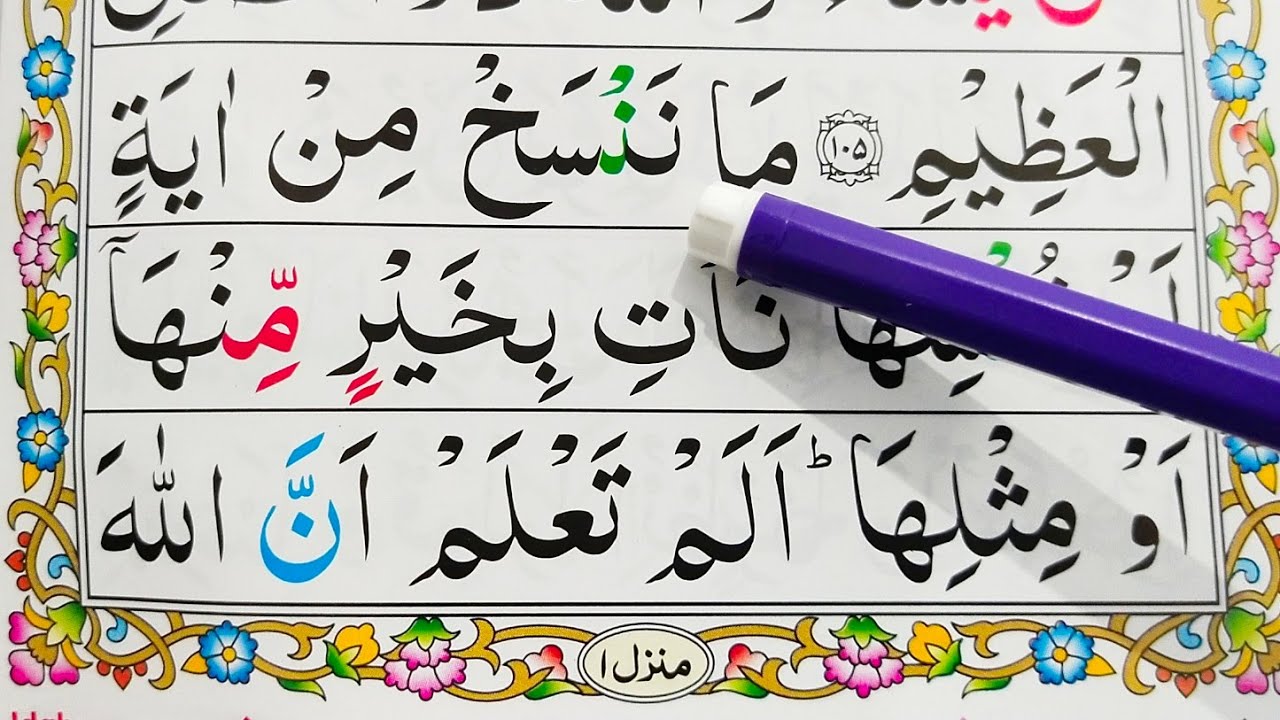 الْعَظِيْمِ ۝۱۰۵ مَا نَنْسَخْ مِنْ اٰيَةٍ
نَاْتِ بِخَيْرٍ مِّنْهَاۤ
اَوْ مِثْلِهَا ؕ اَلَمْ تَعْلَمْ اَنَّ اللّٰهَ
منزل ۱